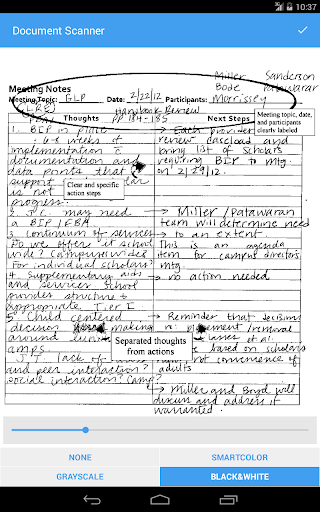 10:37
Document Scanner
Miller Sanderson
Meeting Notes Bode Patawaran
Meeting Topic: GLP Date: 2/22/12 Participants: Morrissey
(LRE) Handbook Review
PP 184-185
Thoughts Next Steps
Meeting topic, date, and participants clearly labeled
1. BIP in place → Each provider
6-8 weeks of review caseload and
implementation & bring list of scholars
documentation and requiring BIP to mtg
data points that on 2/29/12.
support
is not
progress.
Clear and specific action steps
2. may need → Miller/Patawaran
a BIP/FBA. team will determine need
3. continuum of services → to an extent
Do we offer it school This is an agenda
wide? Campuswide? item for campus directors
For individual scholars? mtg.
4. Supplementary aids → no action needed
and services. School
provides structure &
appropriate Tier I
5. Child centered → Reminder that decisions
decision making re: placement/removal
around
based on scholars
not convenience of
J.T. lack of adults
and peer interaction?
social interaction? Camp?
Separated thoughts from actions
→ Miller and Boyd will
discuss and address if
warranted.
NONE SMARTCOLOR
GRAYSCALE BLACK&WHITE